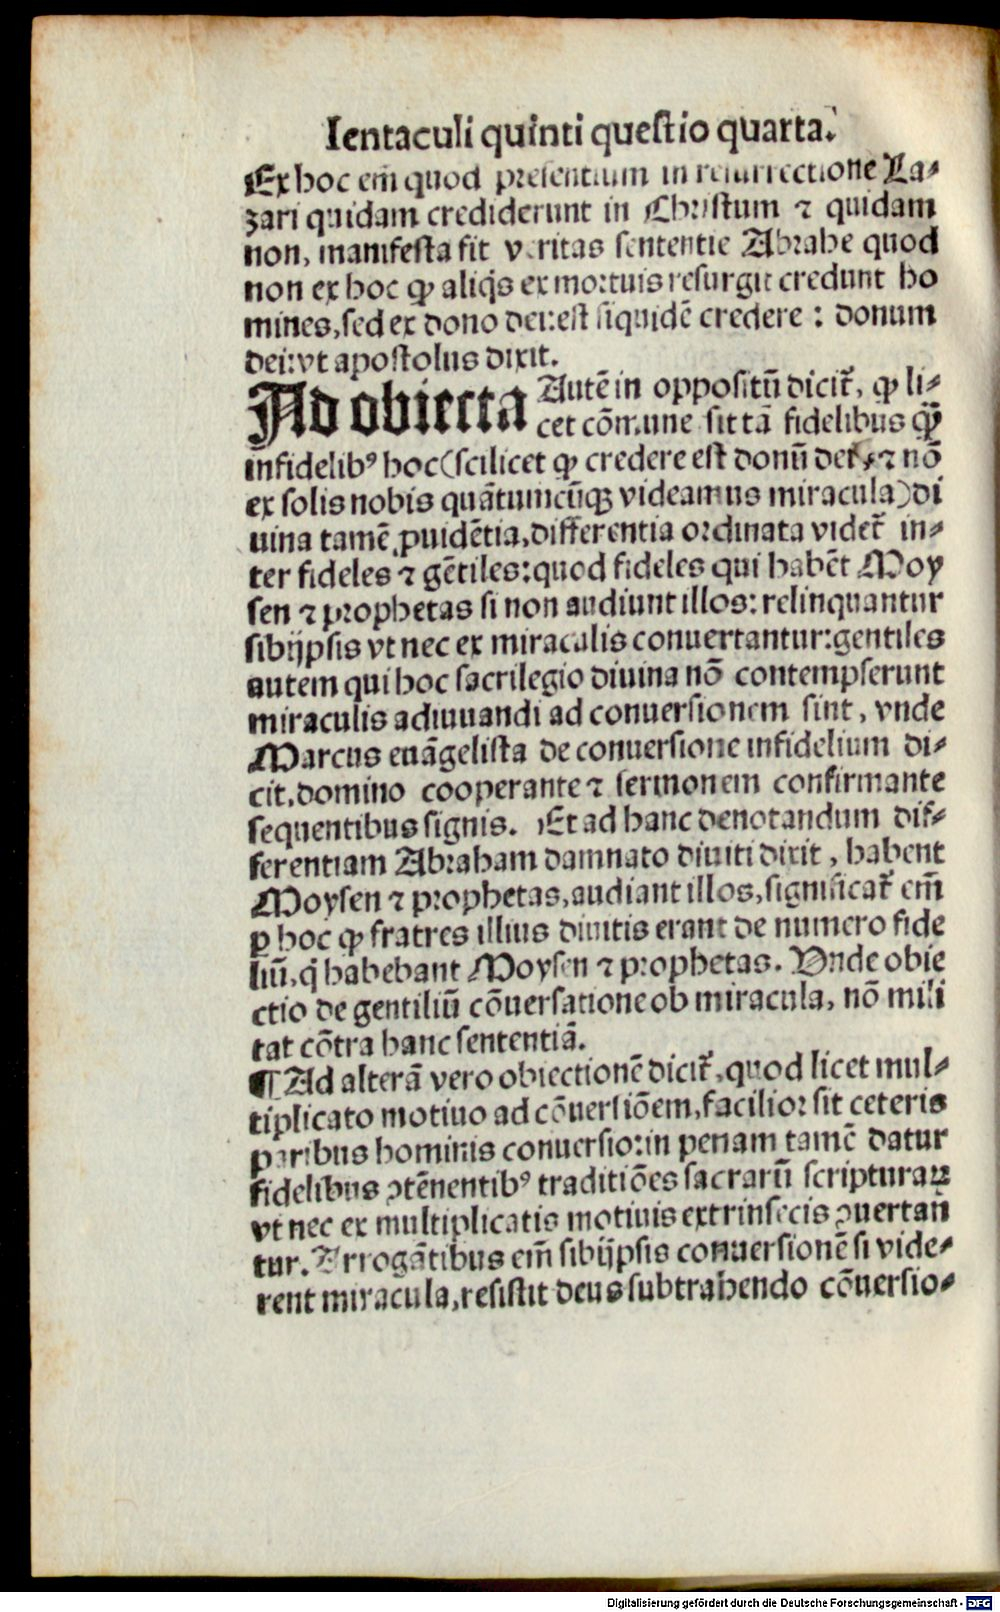 Ientaculi quinti questio quarta.
Ex hoc em̄ quod presentium in resurrectione La⸗
zari quidam crediderunt in Christum ⁊ quidam
non, manifesta fit veritas sententie Abrahe quod
non ex hoc ꝙ aliq̇s ex mortuis resurgit credunt ho
mines, sed ex dono dei: est siquidē credere : donum
dei: vt apostolus dixit.
Ad obiecta Autē in oppositū dicit᷑, ꝙ li⸗
cet cōmune sit tā fidelibus ꝙ̄
infidelibꝰ hoc (scilicet ꝙ credere est donū dei, ⁊ nō
ex solis nobis quātumcūqꝫ videamus miracula) di
uina tamē ꝓuidētia, differentia ordinata videt᷑ in⸗
ter fideles ⁊ gētiles: quod fideles qui habēt Moy
sen ⁊ prophetas si non audiunt illos: relinquantur
sibijpsis vt nec ex miraculis conuertantur: gentiles
autem qui hoc sacrilegio diuina nō contempserunt
miraculis adiuuandi ad conuersionem sint, vnde
Marcus euāgelista de conuersione infidelium di⸗
cit. domino cooperante ⁊ sermonem confirmante
sequentibus signis. Et ad hanc denotandum dif⸗
ferentiam Abraham damnato diuiti dixit, habent
Moysen ⁊ prophetas, audiant illos, significat᷑ em̄
ꝑ hoc ꝙ fratres illius diuitis erant de numero fide
liū, q̇ habebant Moysen ⁊ prophetas. Vnde obie
ctio de gentiliū cōuersatione ob miracula, nō mili
tat cōtra hanc sententiā.
¶ Ad alterā vero obiectionē dicit᷑, quod licet mul⸗
tiplicato motiuo ad cōuersiōem, facilior sit ceteris
paribus hominis conuersio: in penam tamē datur
fidelibus ꝯtēnentibꝰ traditiōes sacrarū scripturaꝝ
vt nec ex multiplicatis motiuis extrinsecis ꝯuertan
tur. Arrogātibus em̄ sibijpsis conuersionē si vide⸗
rent miracula, resistit deus subtrahendo cōuersio⸗
Digitalisierung gefördert durch die Deutsche Forschungsgemeinschaft - DFG